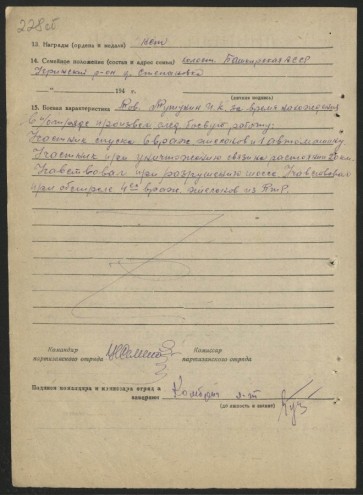 228об
13. Награды (ордена и медали) нет
14. Семейное положение (состав и адрес семьи) холост Башкирская АССР
р-он д. Степановка
„ “ 194 г.
(личная подпись)
15. Боевая характеристика Тов. И.К. за время нахождения
в отряде произвел след. боевую работу:
Участник спуска 6 враж. эшелонов и 1 автомашину.
Участник при уничтожении связи на растоянии
Участвовал при разрушении шоссе. Участвовал
при обстреле 4ех враж. эшелонов из ПтР.
Командир
партизанского отряда
Комиссар
партизанского отряда
Подписи командира и комиссара отряда
заверяю
Комбриг л-т
(должность и звание)